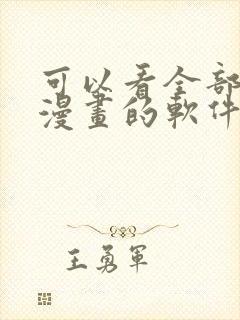 可以看全部
漫畫的軟件
王勇軍